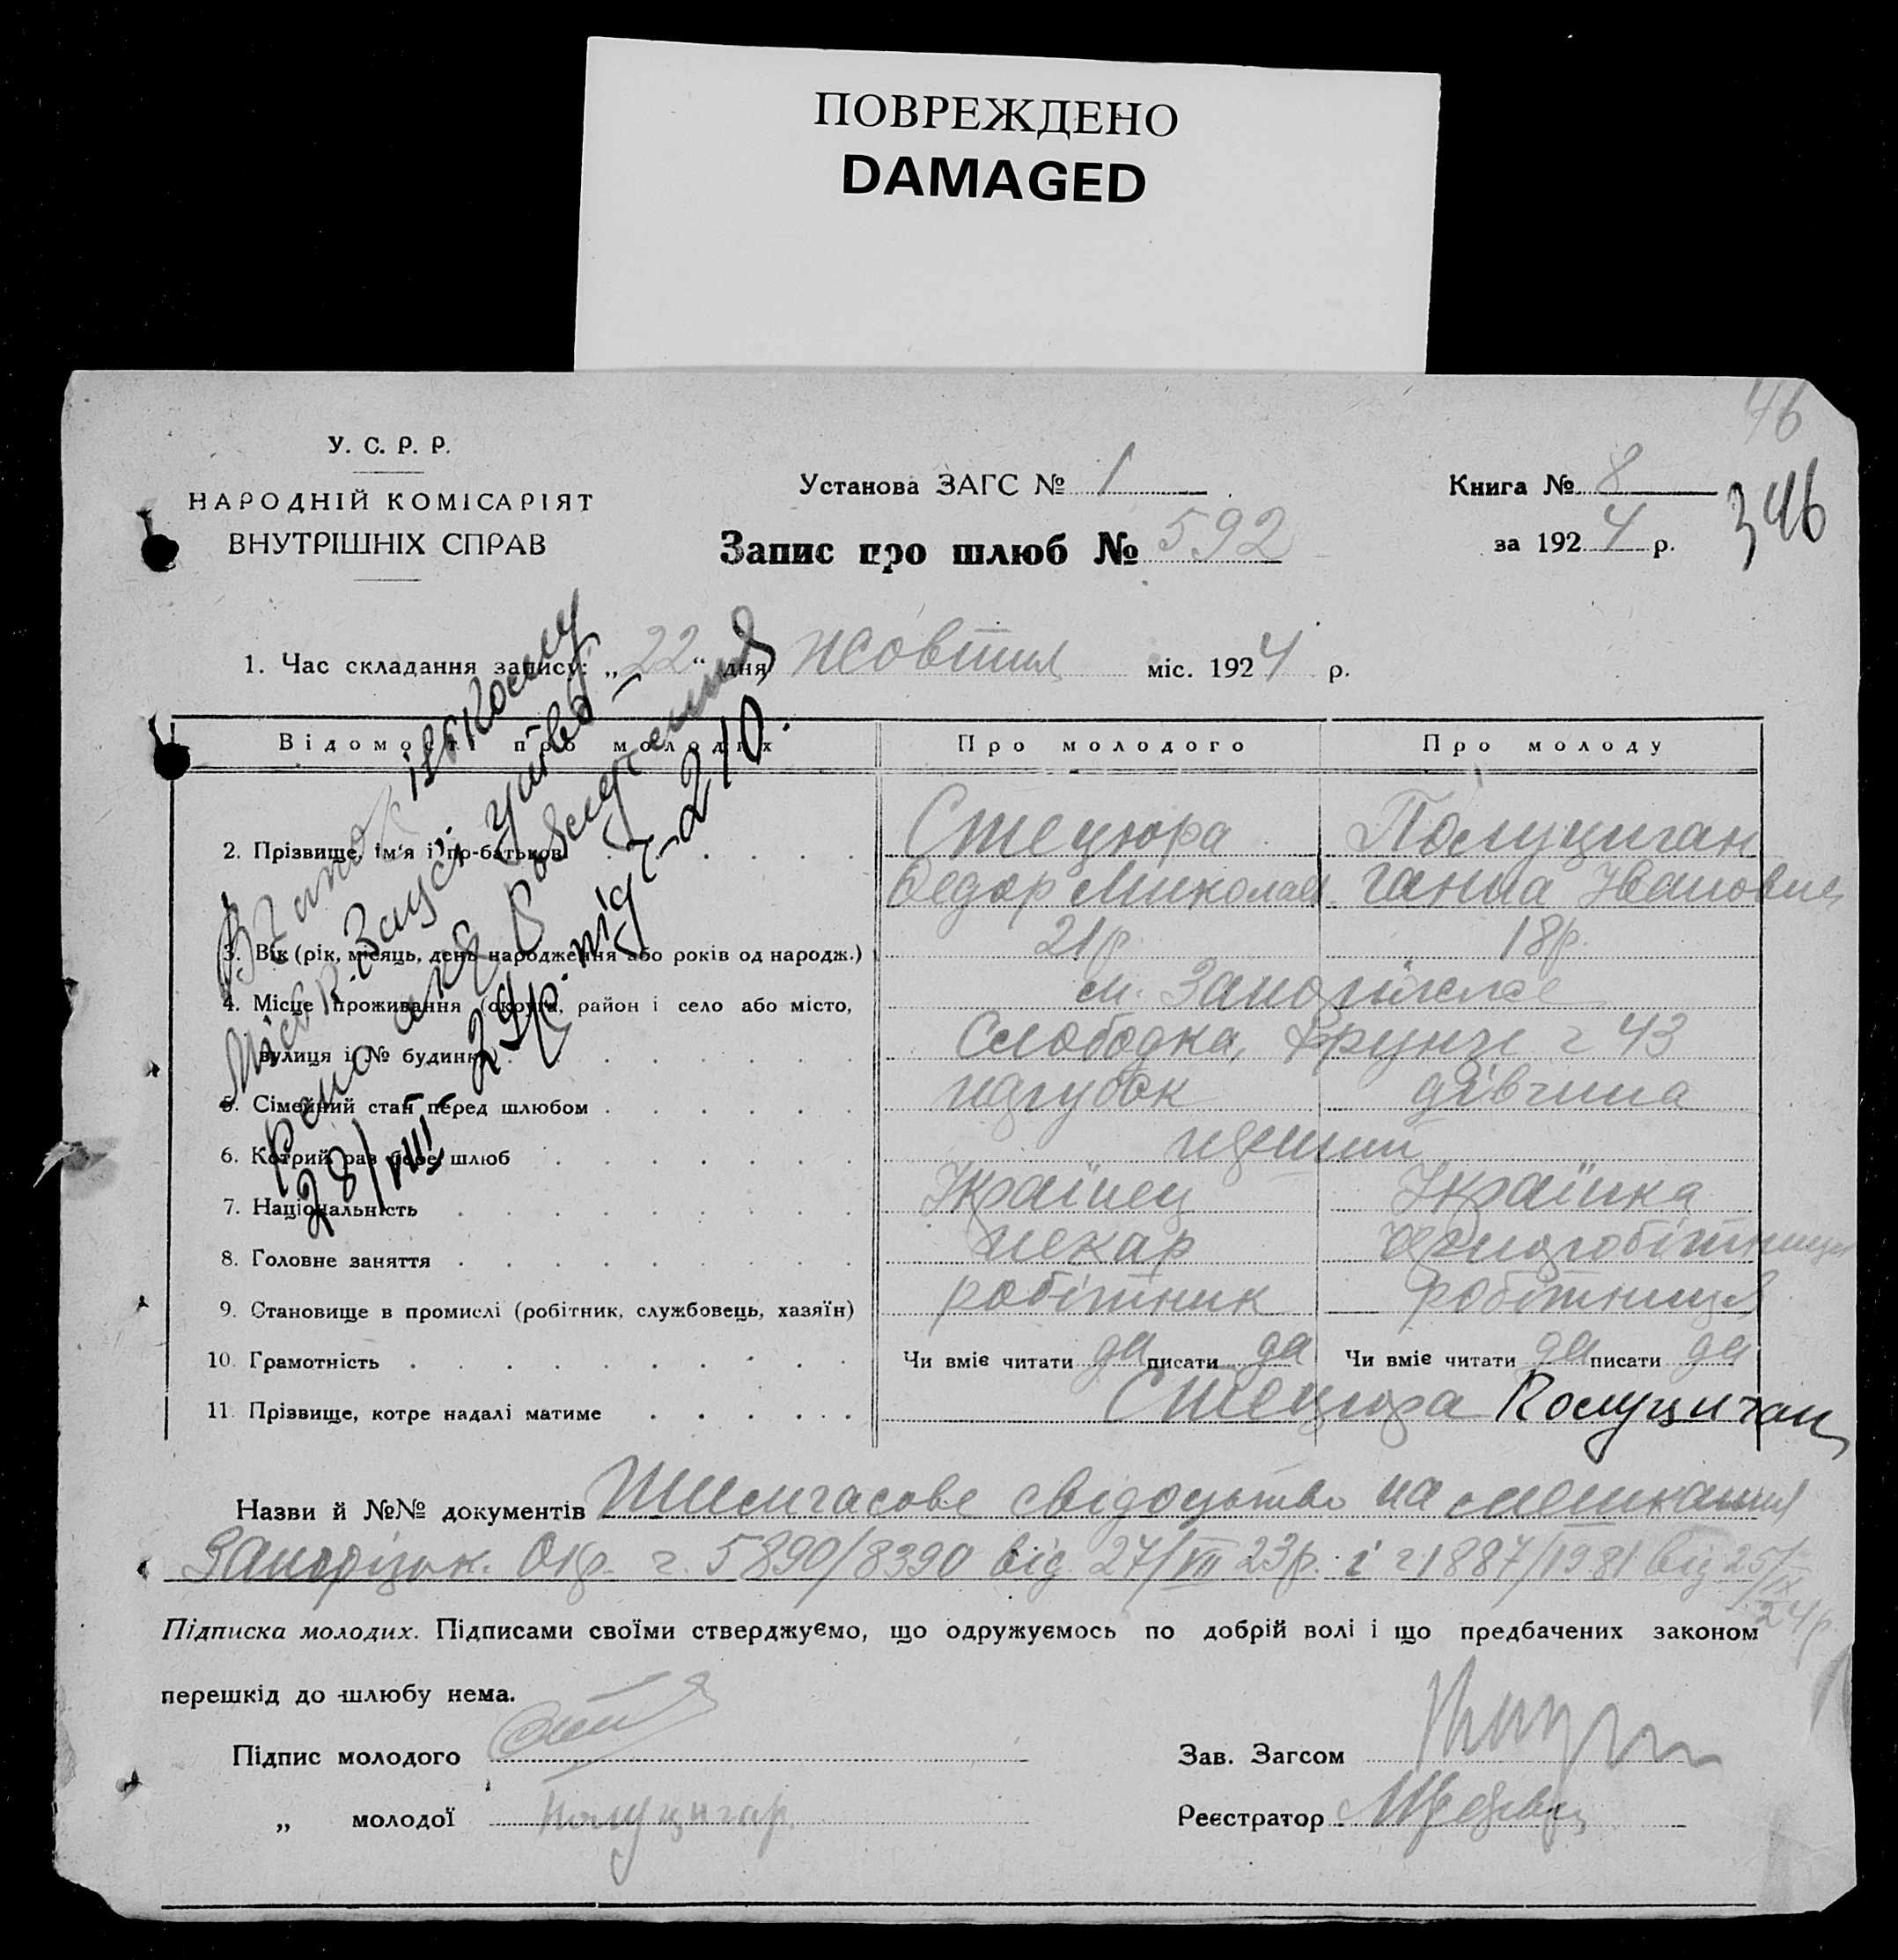 ПОВРЕЖДЕНО
DAMAGED
46
У. С. Р. Р.
НАРОДНІЙ КОМІСАРІЯТ
ВНУТРІШНІХ СПРАВ
Установа ЗАГС № 1
Запис про шлюб № 592
Книга № 8
за 1924 р.
346
1. Час складання запису: „22“ дня Жовтня міс. 1924 р.
Відомості про молодих
Про молодого
Про молоду
2. Прізвище, ім'я і по-батькові
Стецюра
Полуциган
Федор Миколаев.
Ганна Івановна
3. Вік (рік, місяць, день народження або років од народж.)
21 р.
18 р.
4. Місце проживання (округа, район і село або місто,
м. Запоріжжє
вулиця і № будинку)
Слободка, Фрунзе ч 43
5. Сімейний стан перед шлюбом
парубок
дівчина
6. Котрий раз бере шлюб
перший
7. Національність
Українец
Українка
8. Головне заняття
пекар
чорноробітниця
9. Становище в промислі (робітник, службовець, хазяїн)
робітник
робітниця
10. Грамотність
Чи вміє читати да писати да
Чи вміє читати да писати да
11. Прізвище, котре надалі матиме
Стецюра
Полуциган
Назви й №№ документів свідоцтво на мешкання
Запоріжж. Окр. ч. 5890/8390 від 27/VII 23р. і ч 1887/1981 від 25/IX 24р.
Підписка молодих. Підписами своїми стверджуємо, що одружуємось по добрій волі і що предбачених законом
перешкід до шлюбу нема.
Підпис молодого
Зав. Загсом
„ молодої Полуциган
Реєстратор
28/VIII 29р. під ч. 210.